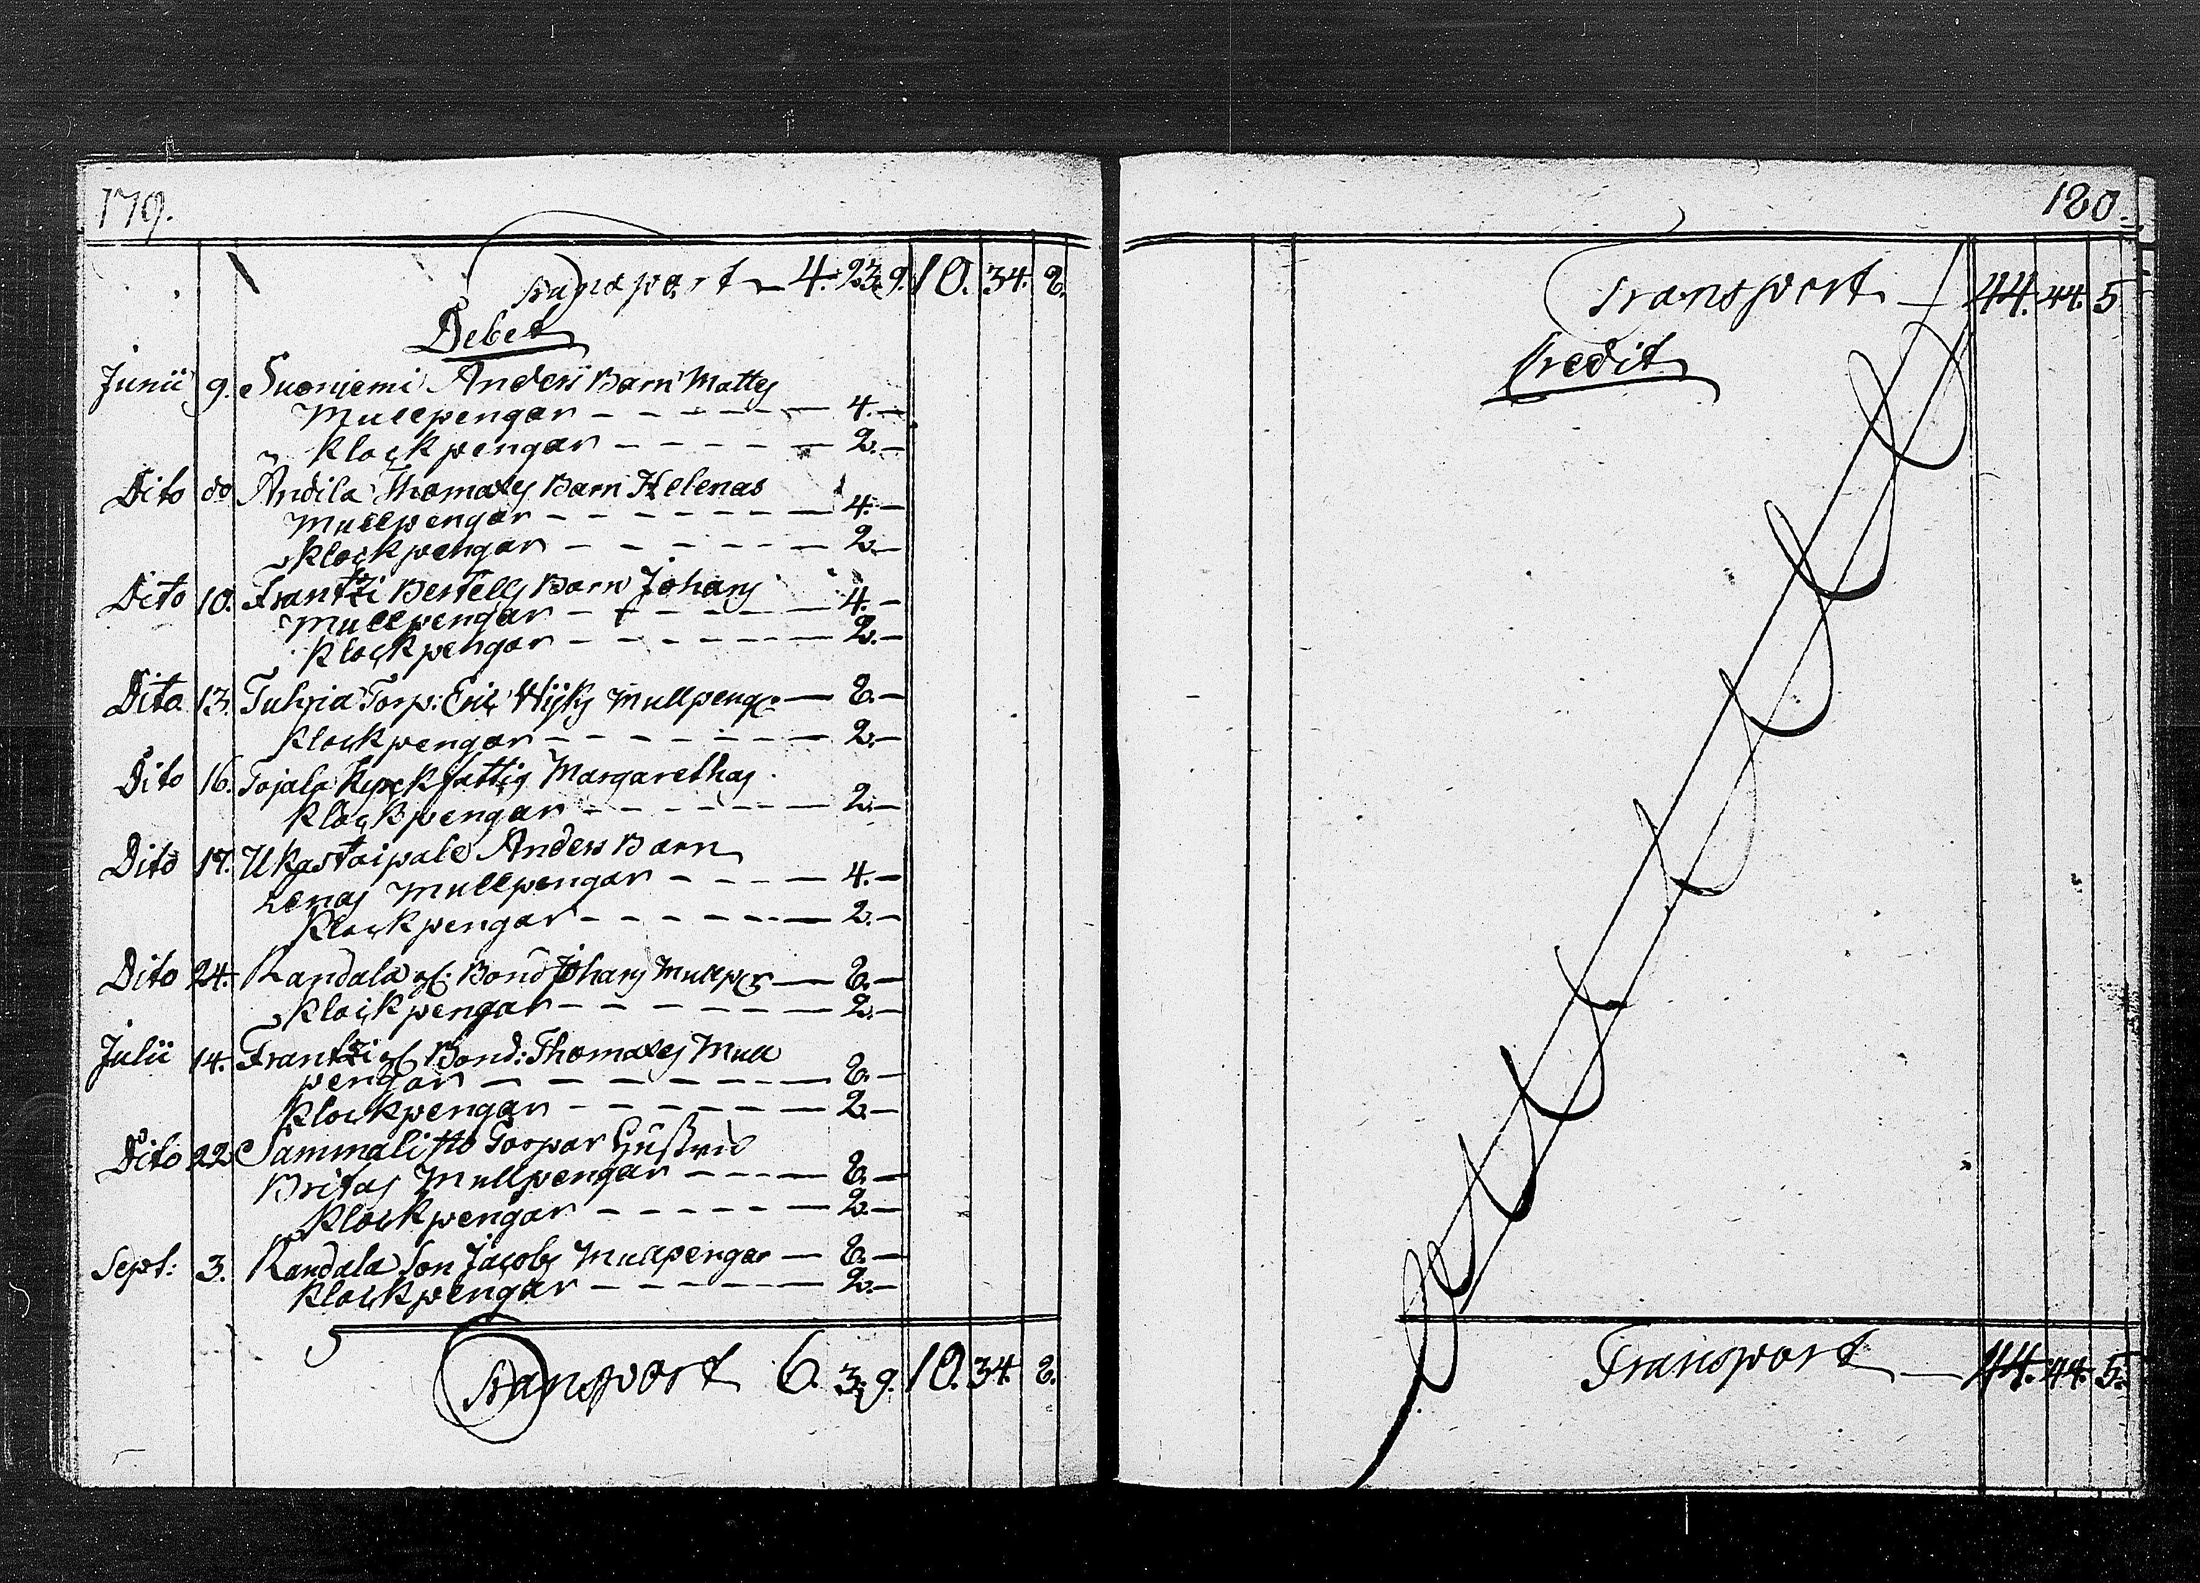 179.
Transport 4. 23. 9. 10. 34. 8.
Debet
Junii 9. Suoniemi Anders Barn Mattes
Mullpengar 4. —
Klockpengar 2. —
Dito do Andila Thomases Barn Helenas
Mullpengar 4. —
Klockpengar 2. —
Dito 10. Frantzi Bertells Barn Johans
Mullpengar 4. —
Klockpengar 2. —
Dito 13. Torp: Eric Mullpeng: 8. —
Klockpengar 2. —
Dito 16. Tojala fattig Margarethas
Klockpengar 2. —
Dito 17. Ukastaipale Anders Barn
Lenas Mullpengar 4. —
Klockpengar 2. —
Dito 24. Randala Bond Johans 8. —
Klockpengar 2. —
Julii 14. Frantzi Bond: Thomases Mull
pengar 8. —
Klockpengar 2. —
Dito 22 Sammalisto Torpar
Britas Mullpengar 8. —
Klockpengar 2. —
Sept: 3. Randala Son Jacobs Mullpengar 8. —
Klockpengar 2. —
Transport 6. 3. 9. 10. 34. 8.
180.
Transport 44. 44. 5
Credit
Transport 44. 44. 5.